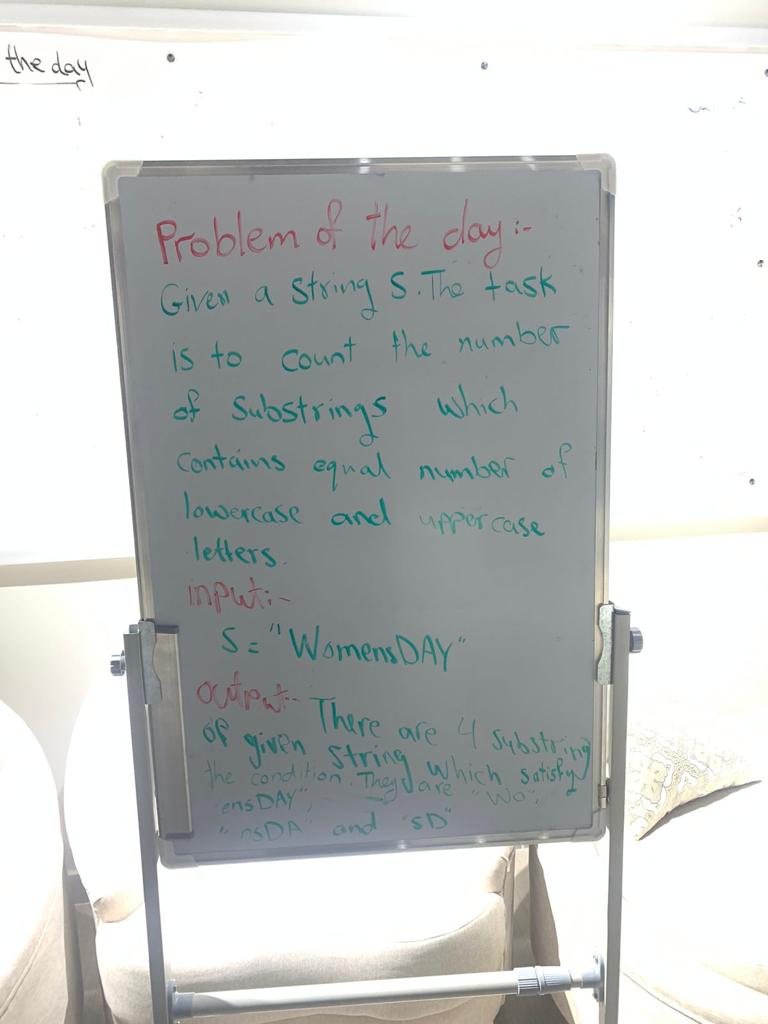 the day
Problem of the day:-
Given a string S. The task
is to count the number
of substrings which
contains equal number of
lowercase and uppercase
letters.
input:-
S = "WomensDAY"
output:- There are 4 substring
of given string which satisfy
the condition. They are "Wo",
"ensDAY",
"nsDA" and "sD"